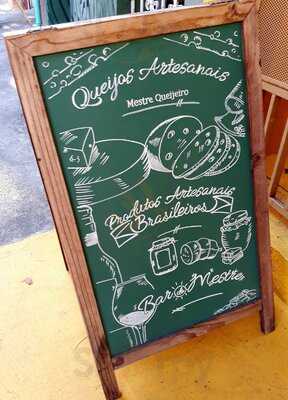 Queijos Artesanais
Mestre Queijeiro
Produtos Artesanais
Brasileiros
Bar do Mestre